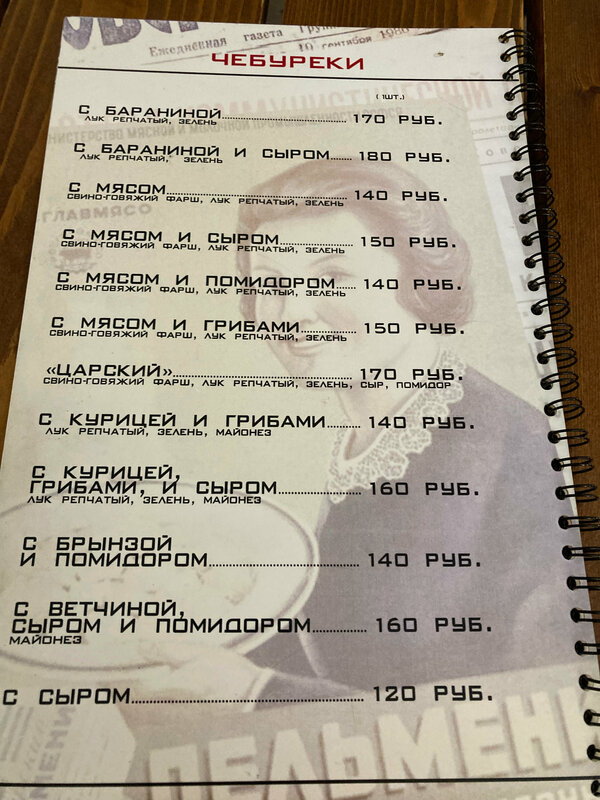 Ежедневная газета
10 сентября 1986
ЧЕБУРЕКИ
(1ШТ.)
С БАРАНИНОЙ 170 РУБ.
ЛУК РЕПЧАТЫЙ, ЗЕЛЕНЬ
С БАРАНИНОЙ И СЫРОМ 180 РУБ.
ЛУК РЕПЧАТЫЙ, ЗЕЛЕНЬ
С МЯСОМ 140 РУБ.
СВИНО-ГОВЯЖИЙ ФАРШ, ЛУК РЕПЧАТЫЙ, ЗЕЛЕНЬ
ГЛАВМЯСО
С МЯСОМ И СЫРОМ 150 РУБ.
СВИНО-ГОВЯЖИЙ ФАРШ, ЛУК РЕПЧАТЫЙ, ЗЕЛЕНЬ
С МЯСОМ И ПОМИДОРОМ 140 РУБ.
СВИНО-ГОВЯЖИЙ ФАРШ, ЛУК РЕПЧАТЫЙ, ЗЕЛЕНЬ
С МЯСОМ И ГРИБАМИ 150 РУБ.
СВИНО-ГОВЯЖИЙ ФАРШ, ЛУК РЕПЧАТЫЙ, ЗЕЛЕНЬ
«ЦАРСКИЙ» 170 РУБ.
СВИНО-ГОВЯЖИЙ ФАРШ, ЛУК РЕПЧАТЫЙ, ЗЕЛЕНЬ, СЫР, ПОМИДОР
С КУРИЦЕЙ И ГРИБАМИ 140 РУБ.
ЛУК РЕПЧАТЫЙ, ЗЕЛЕНЬ, МАЙОНЕЗ
С КУРИЦЕЙ,
ГРИБАМИ, И СЫРОМ 160 РУБ.
ЛУК РЕПЧАТЫЙ, ЗЕЛЕНЬ, МАЙОНЕЗ
С БРЫНЗОЙ
И ПОМИДОРОМ 140 РУБ.
С ВЕТЧИНОЙ,
СЫРОМ И ПОМИДОРОМ 160 РУБ.
МАЙОНЕЗ
С СЫРОМ 120 РУБ.
ПЕЛЬМЕНИ